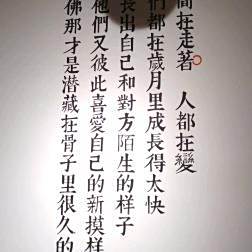 间在走著 人都在變
们都在歲月里成長得太快
長出自己和對方陌生的样子
他們又彼此喜愛自己的新摸样
佛那才是潜藏在骨子里很久的